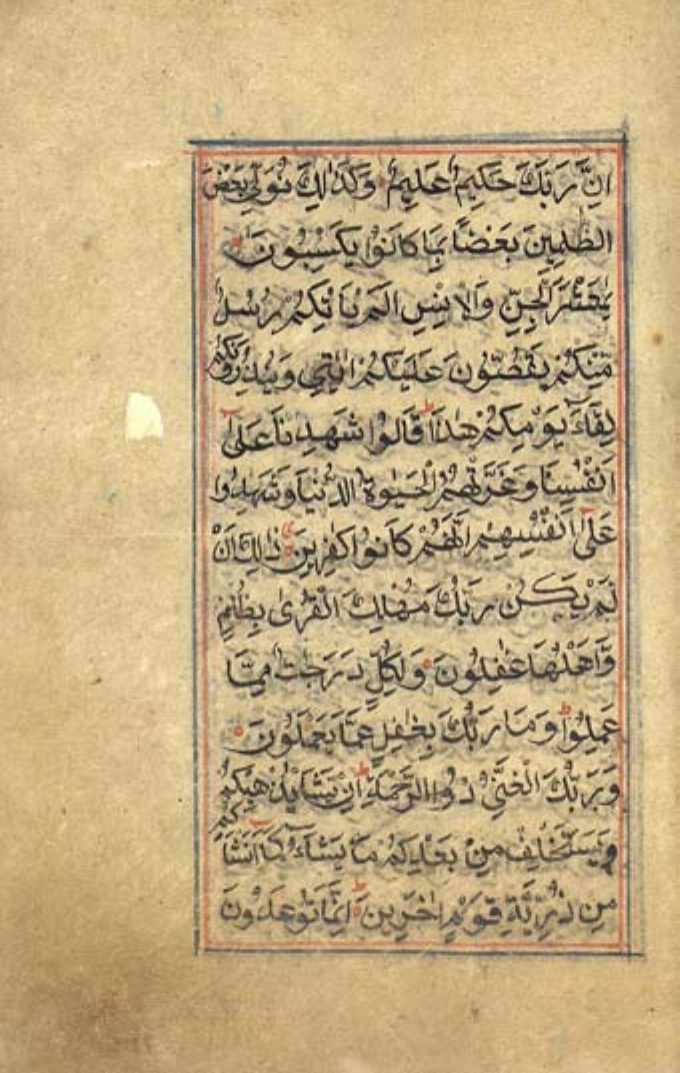 اِنَّ رَبَّكَ حَكِيمٌ عَلِيمٌ وَكَذٰلِكَ نُوَلِّي بَعْضَ
الظّٰلِمِينَ بَعْضًا بِمَا كَانُوا يَكْسِبُونَ
يٰمَعْشَرَ الْجِنِّ وَالْاِنْسِ اَلَمْ يَاْتِكُمْ رُسُلٌ
مِنْكُمْ يَقُصُّونَ عَلَيْكُمْ اٰيٰتِي وَيُنْذِرُونَكُمْ
لِقَاءَ يَوْمِكُمْ هٰذَا قَالُوا شَهِدْنَا عَلٰى
اَنْفُسِنَا وَغَرَّتْهُمُ الْحَيٰوةُ الدُّنْيَا وَشَهِدُوا
عَلٰى اَنْفُسِهِمْ اَنَّهُمْ كَانُوا كٰفِرِينَ ذٰلِكَ اَنْ
لَمْ يَكُنْ رَبُّكَ مُهْلِكَ الْقُرٰى بِظُلْمٍ
وَّاَهْلُهَا غٰفِلُونَ وَلِكُلٍّ دَرَجٰتٌ مِمَّا
عَمِلُوا وَمَا رَبُّكَ بِغٰفِلٍ عَمَّا يَعْمَلُونَ
وَرَبُّكَ الْغَنِيُّ ذُو الرَّحْمَةِ اِنْ يَشَاْ يُذْهِبْكُمْ
وَيَسْتَخْلِفْ مِنْ بَعْدِكُمْ مَا يَشَاءُ كَمَا اَنْشَاَكُمْ
مِنْ ذُرِّيَّةِ قَوْمٍ اٰخَرِينَ اِنَّمَا تُوعَدُونَ